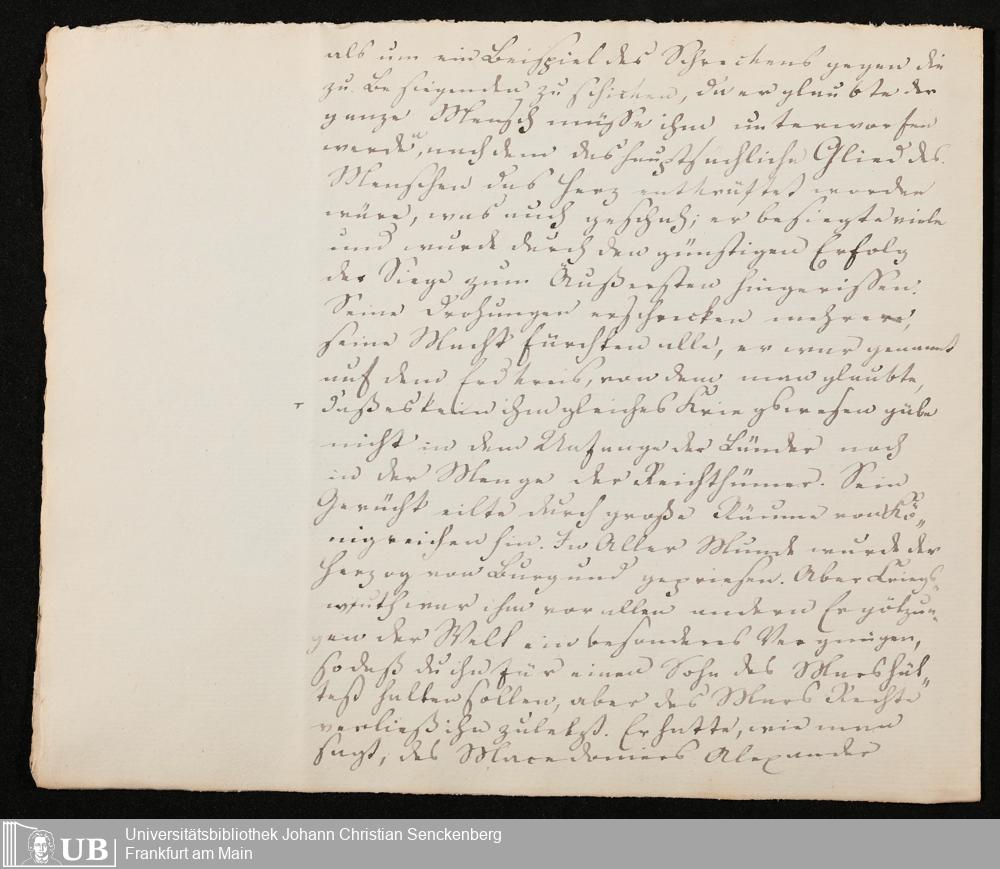 als um ein Beispiel des Schreckens gegen die
zu Besiegenden zu schicken, da er glaubte der
ganze Mensch müsse ihm unterworfen
werde, nachdem das hauptsächliche Glied des
Menschen das Herz entkräftet worden
wäre, was auch geschah; er besiegte viele
und wurde durch den günstigen Erfolg
der Siege zum Äußersten hingerissen.
Seine Drohungen erschrecken mehrere,
seine Macht fürchten alle, er war genannt
auf dem Erdkreis, von dem man glaubte,
daß es kein ihm gleiches Kriegswesen gäbe
nicht in dem Umfange der Länder noch
in der Menge der Reichthümer. Sein
Gerücht eilte durch große Räume von Kö„
nigreichen hin. In Aller Munde wurde der
Herzog von Burgund gepriesen. Aber Kriegs„
wuth war ihm vor allen andern Ergötzun„
gen der Welt ein besonderes Vergnügen,
sodaß du ihn für einen Sohn des Mars hät„
test halten sollen, aber des Mars Rechte
verließ ihn zuletzt. Er hatte, wie man
sagt, des Macedoniers Alexander
UB
Universitätsbibliothek Johann Christian Senckenberg
Frankfurt am Main